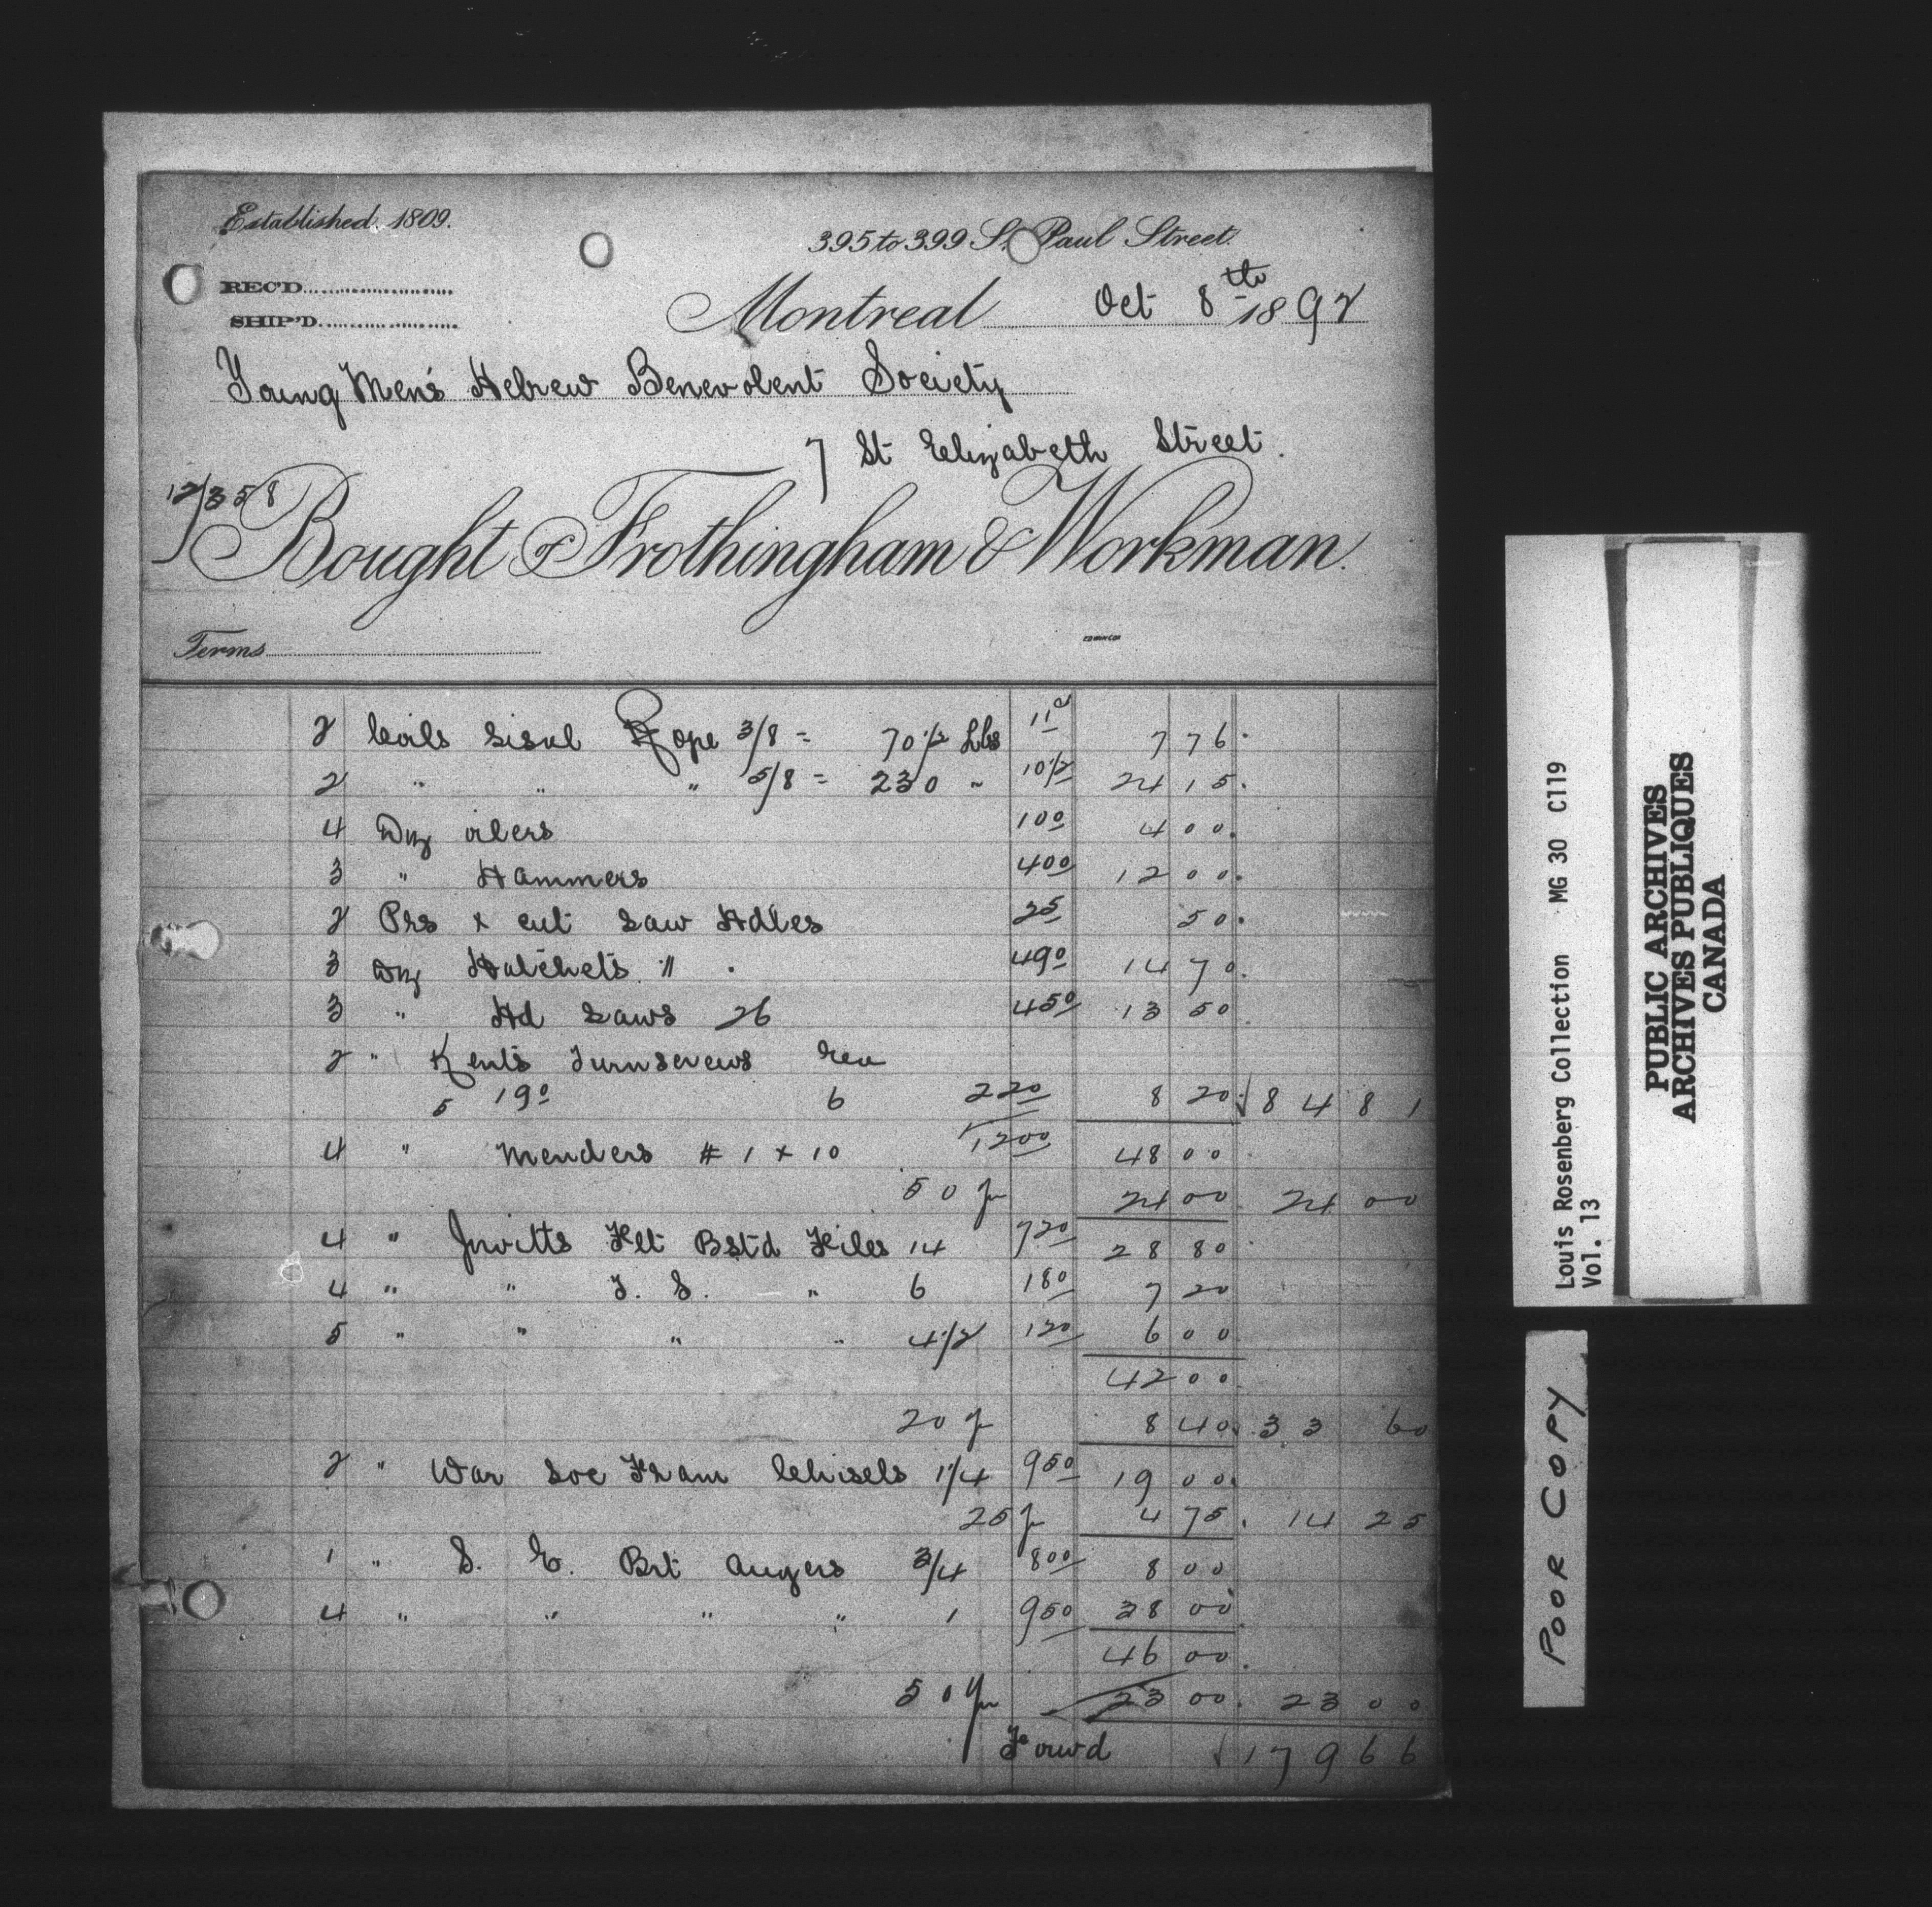 Established 1809.
395 to 399 St. Paul Street.
REC'D
SHIP'D
Montreal Oct 8th 1892
Young Men's Hebrew Benevolent Society
7 St Elizabeth Street.
12/358
Bought of Frothingham & Workman.
Terms
2 Coils Sisal Rope 3/8 = 70 1/2 Lbs 11 7 76
2 " " " 5/8 = 230 " 10 1/2 24 15
4 Dz oilers 100 4 00
3 " Hammers 400 12 00
2 Prs x cut Saw Hdles 25 50
3 Dz Hatchets " 490 14 70
3 " Hd Saws 26 450 13 50
2 " Kents Turnscrews
5 190 6 220 8 20 84 81
4 " Menders # 1 x 10 1200 48 00
50 24 00 24 00
4 " Jowitts Flt Bstd Files 14 720 28 80
4 " " T. S. " 6 180 7 20
5 " " " " 4 1/2 120 6 00
42 00
20 8 40 33 60
2 " War Soc Fram Chisels 1 1/4 950 19 00
25 4 75 14 25
1 " S. C. Brt Augers 3/4 800 8 00
4 " " " " 1 950 38 00
46 00
50 23 00 23 00
Forwd 179 66
Louis Rosenberg Collection MG 30 C119
Vol. 13
PUBLIC ARCHIVES
ARCHIVES PUBLIQUES
CANADA
POOR COPY